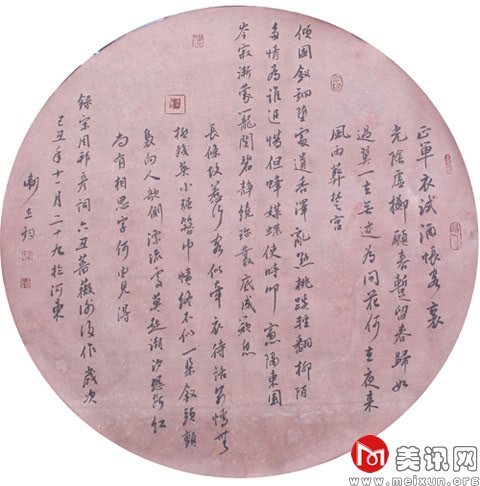 正單衣試酒悵客裏
光陰虛擲願春暫留春歸如
過翼一去無迹為問花何在夜来
風雨葬楚宮
傾國釵鈿墮處遺香澤亂點桃蹊輕翻柳陌
多情為誰追惜但蜂媒蝶使時叩窻隔東園
岑寂漸蒙籠闇碧靜繞珍叢底成歎息
長條故惹行客似牽衣待話别情無
極殘英小强簪巾幘終不似一朵釵頭顫
裊向人欹側漂流處莫趁潮汐恐斷紅
尚有相思字何由見得
錄宋周邦彥詞六丑薔薇謝後作歲次
己丑年十一月二十九於河東
美讯网
www.meixun.org